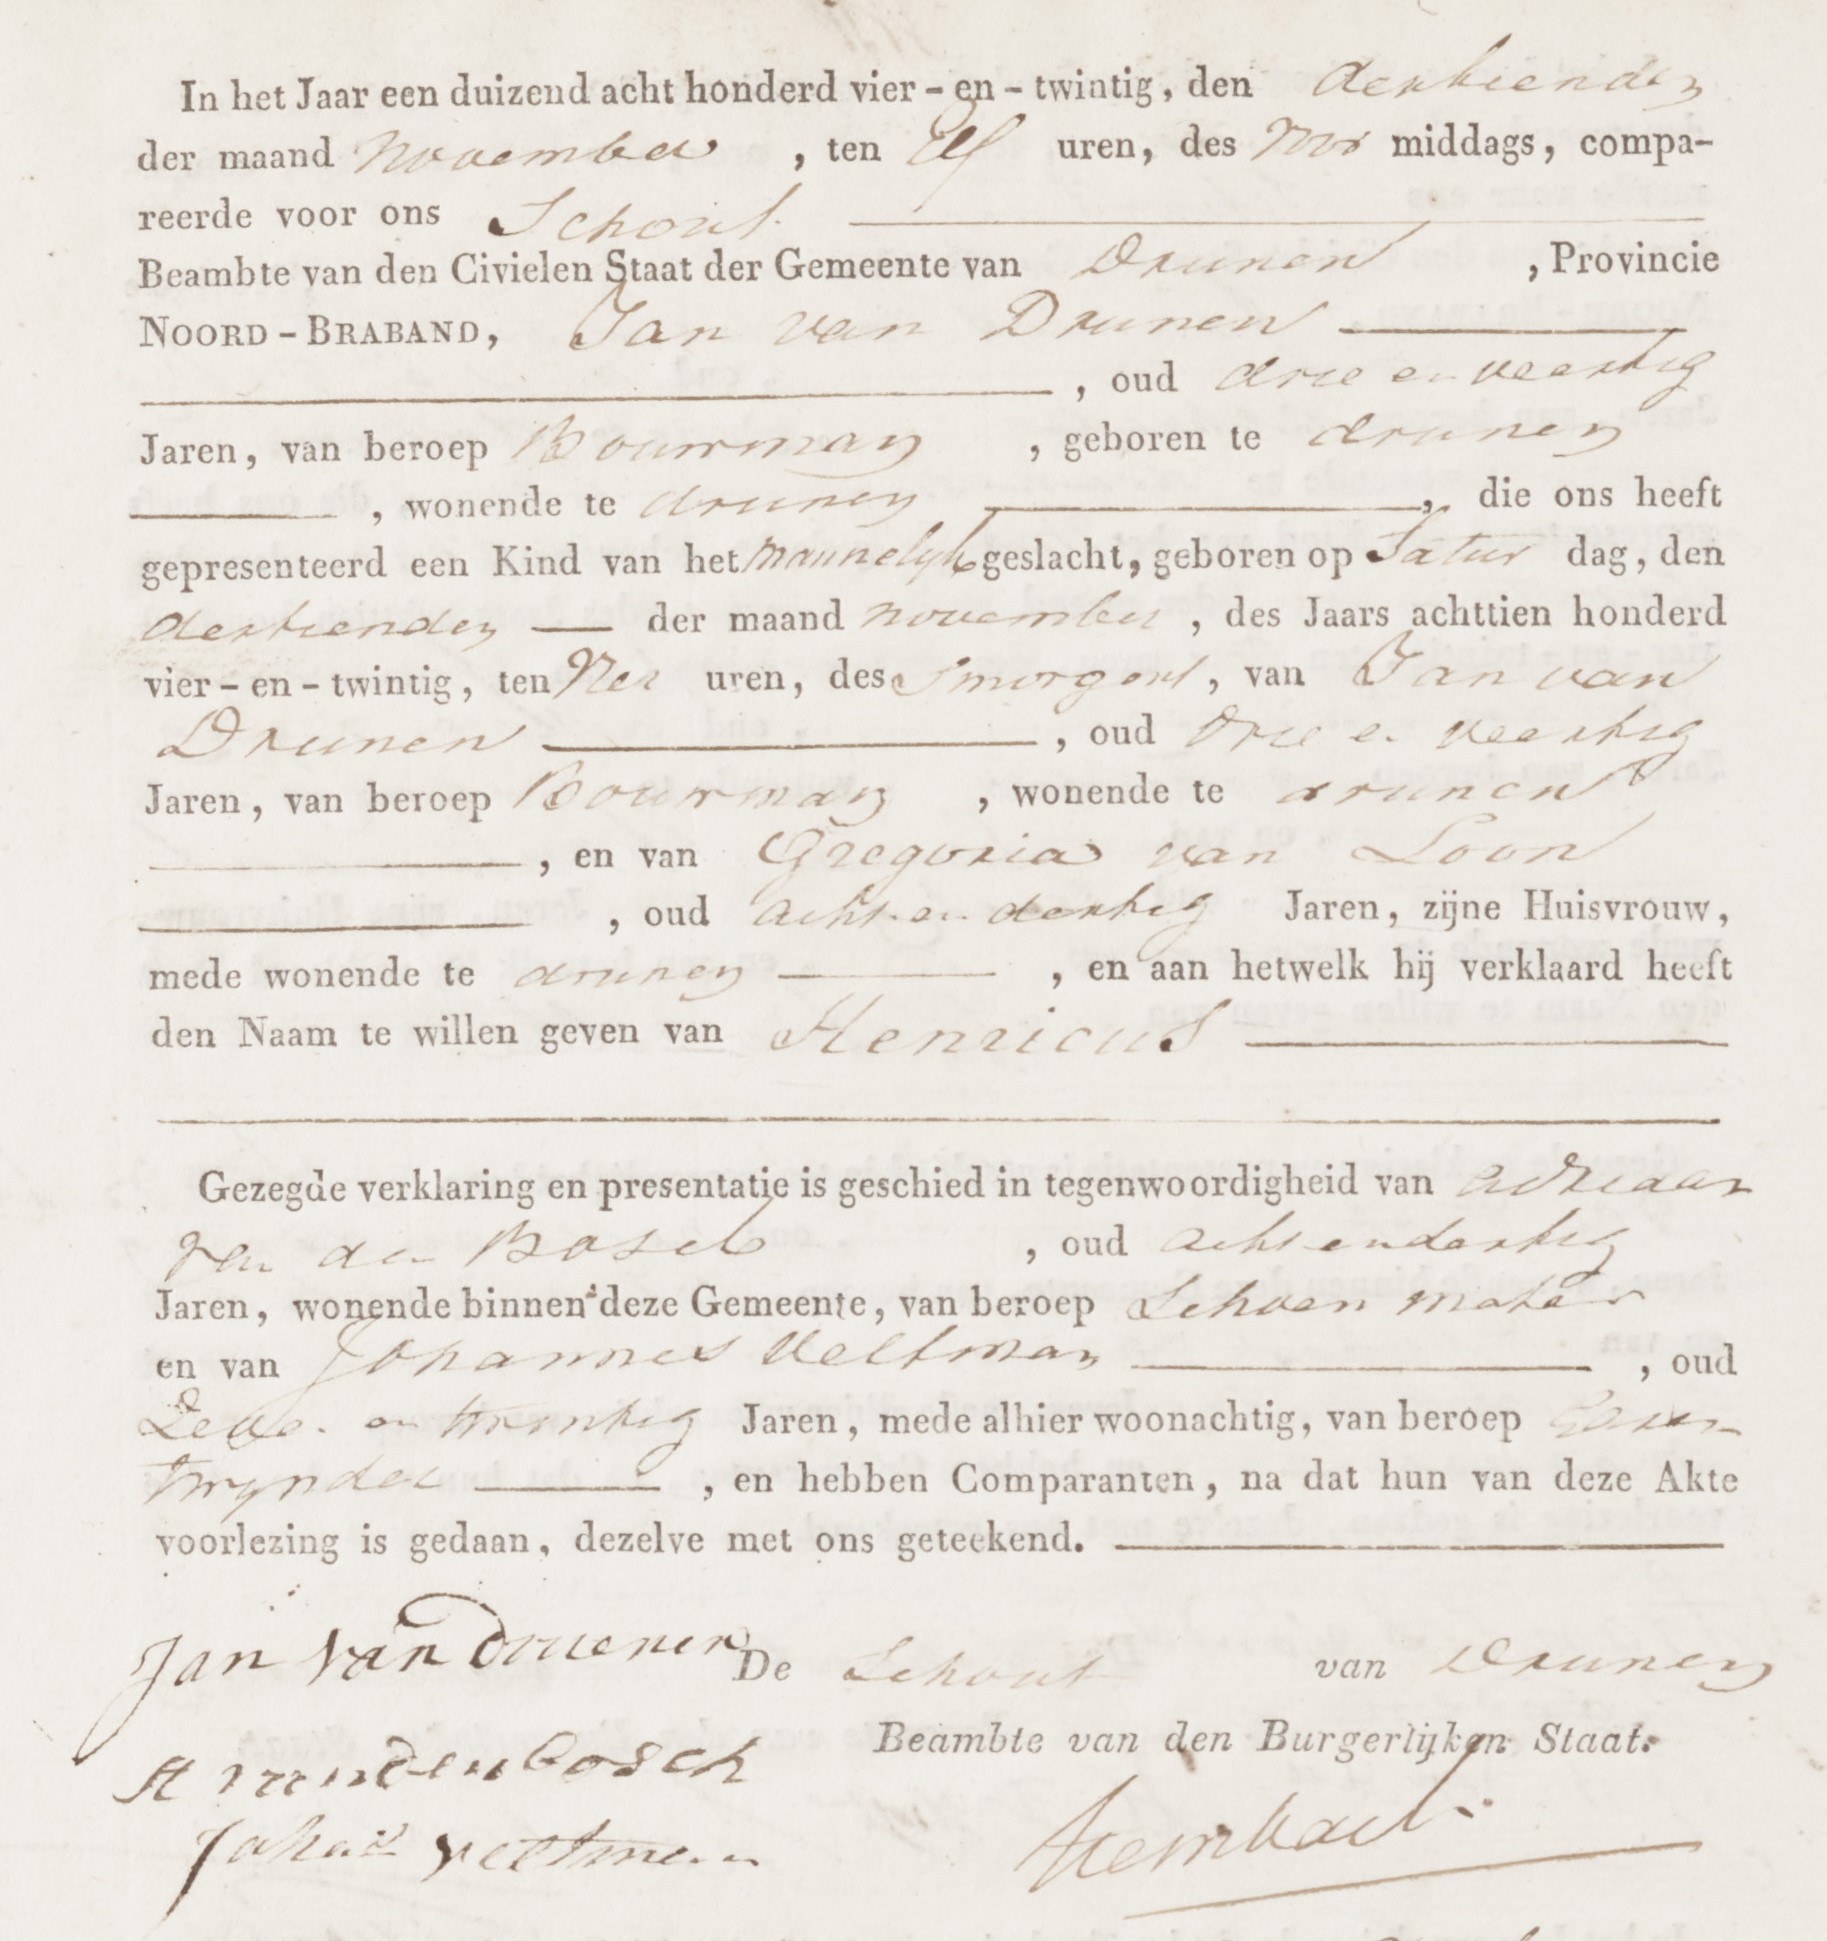 In het Jaar een duizend acht honderd vier-en-twintig, den dertienden
der maand November, ten Elf uren, des Voor middags, compa-
reerde voor ons Schout
Beambte van den Civielen Staat der Gemeente van Drunen, Provincie
NOORD-BRABAND, Jan van Drunen
, oud drie en veertig
Jaren, van beroep Bouwman, geboren te drunen
, wonende te drunen, die ons heeft
gepresenteerd een Kind van het mannelijk geslacht, geboren op Satur dag, den
dertienden der maand november, des Jaars achttien honderd
vier-en-twintig, ten uren, des Smorgens, van Jan van
Drunen, oud drie en veertig
Jaren, van beroep Bouwman, wonende te drunen
, en van Gregoria van Loon
, oud acht en dertig Jaren, zijne Huisvrouw,
mede wonende te drunen, en aan hetwelk hij verklaard heeft
den Naam te willen geven van Henricus
Gezegde verklaring en presentatie is geschied in tegenwoordigheid van adriaan
van den Bosch, oud acht en dertig
Jaren, wonende binnen deze Gemeente, van beroep Schoenmaker
en van Johannes Veltman, oud
Zeven en twintig Jaren, mede alhier woonachtig, van beroep
, en hebben Comparanten, na dat hun van deze Akte
voorlezing is gedaan, dezelve met ons geteekend.
Jan van Druenen De Schout van Drunen
A van den bosch Beambte van den Burgerlijken Staat.
Johan Veltman